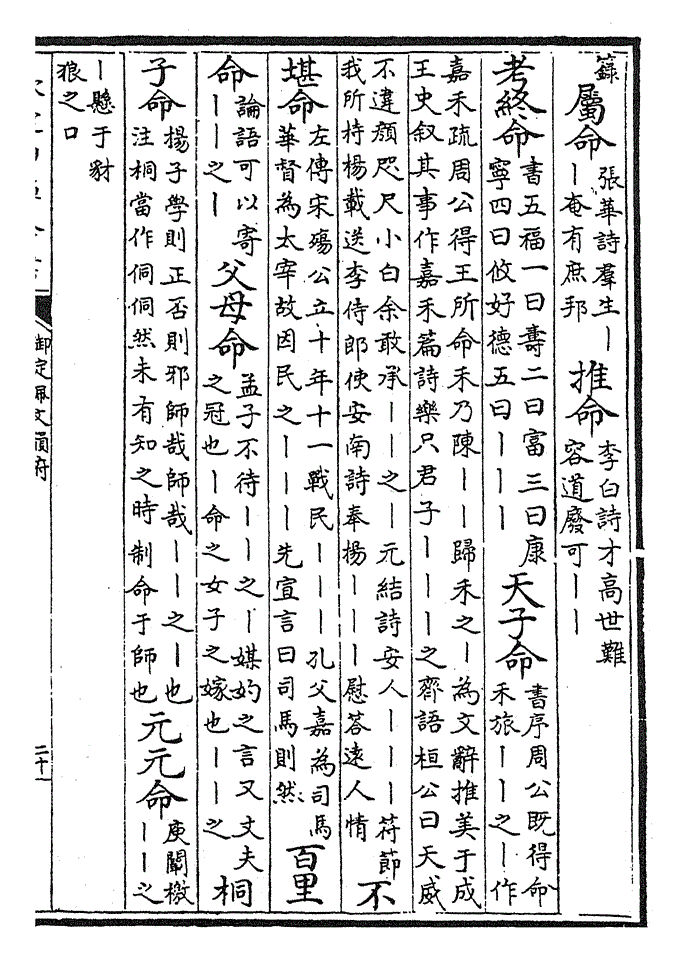 籙 屬命 張華詩羣生丨丨奄有庶邦 推命 李白詩才高世難容道廢可丨丨
考終命 書五福一曰壽二曰富三曰康寧四曰攸好德五曰丨丨丨 天子命 書序周公既得命禾旅丨丨之丨作
嘉禾疏周公得王所命禾乃陳丨丨歸禾之丨為文辭推美于成王史叙其事作嘉禾篇詩樂只君子丨丨丨之齊語桓公曰天威
不違顔咫尺小白余敢承丨丨之丨元結詩安人丨丨丨符節我所持楊載送李侍郎使安南詩奉揚丨丨丨慰荅遠人情 不
堪命 左傳宋殤公立十年十一戰民丨丨丨孔父嘉為司馬華督為太宰故因民之丨丨丨先宣言曰司馬則然 百里
命 論語可以寄丨丨之丨 父母命 孟子不待丨丨之丨媒妁之言又丈夫之冠也丨命之女子之嫁也丨丨之 桐
子命 揚子學則正否則邪師哉師哉丨丨之丨也注桐當作侗侗然未有知之時制命于師也 元元命 庾闡檄丨丨之
丨懸于豺狼之口
御定佩文韻府
二十一